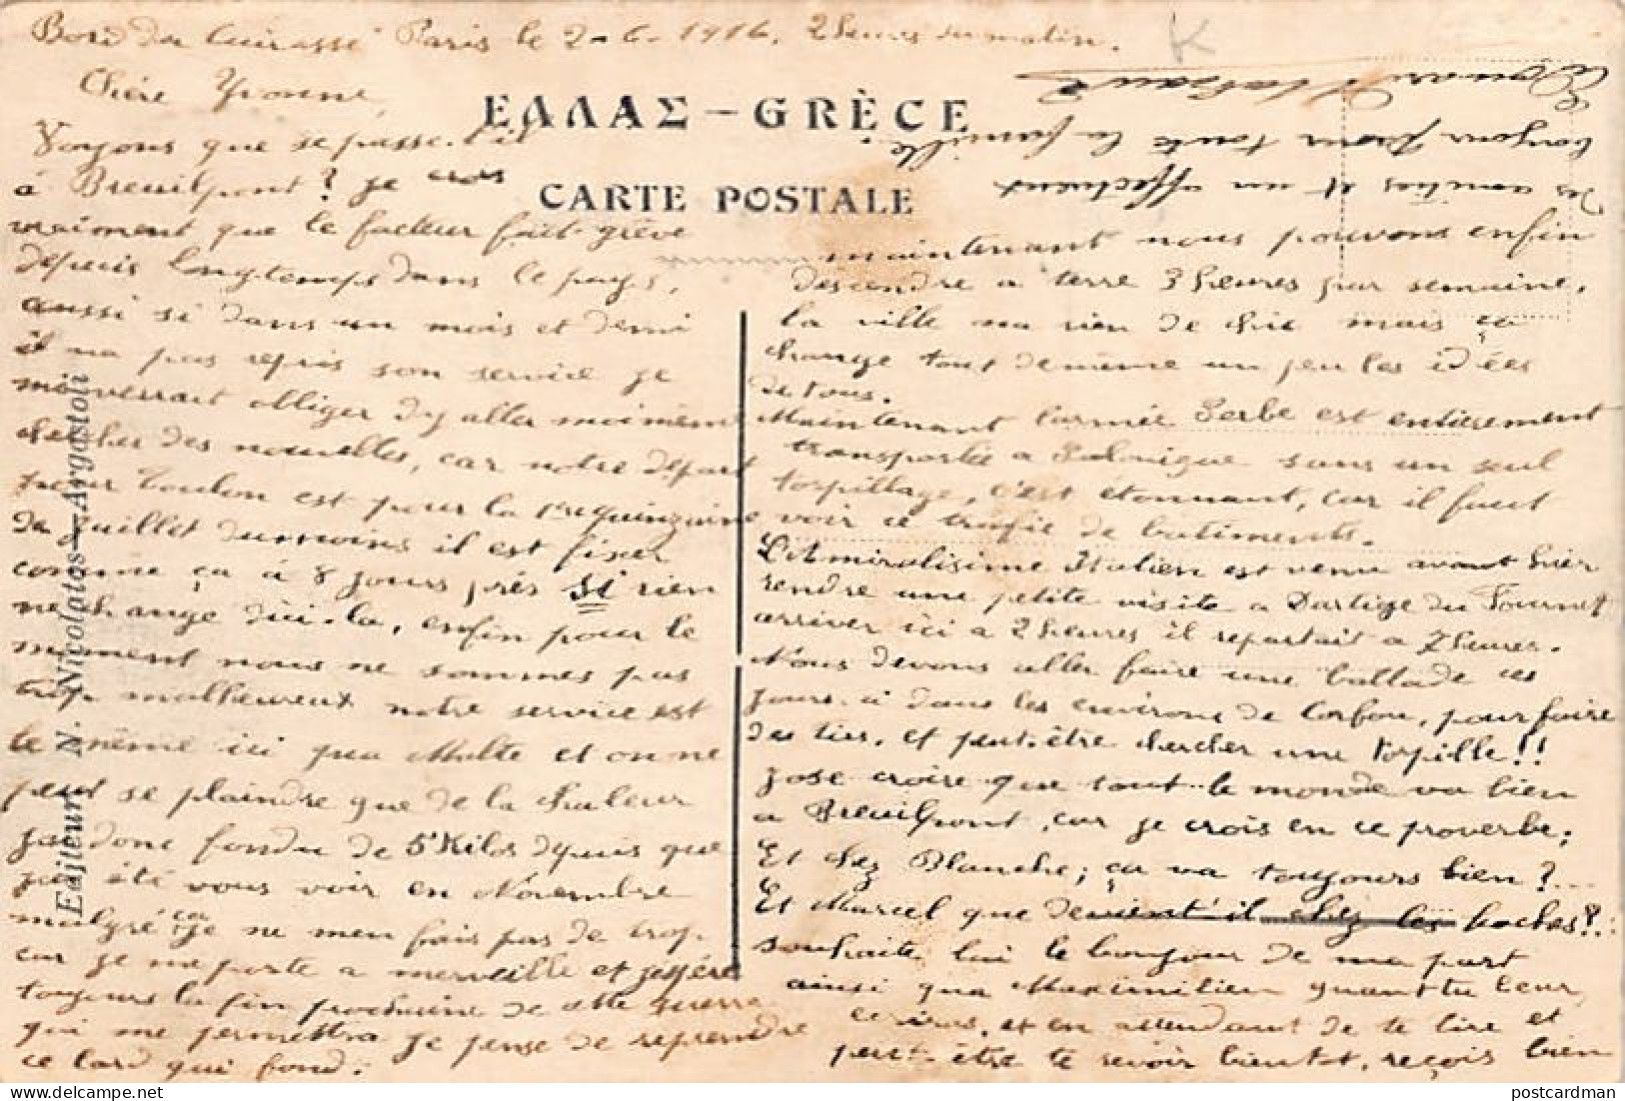 Bord du Cuirassé "Paris le 2-6-1916. 2 heures du matin.
Chère Yvonne,
Voyons que se passe-t-il
à Breuilpont ? je crois
vraiment que le facteur fait grève
depuis longtemps dans le pays,
aussi si dans un mois et demi
il na pas repris son service je
me verrait obliger d'y aller moi même
chercher des nouvelles, car notre départ
pour Toulon est pour la 1re quinzaine
de juillet du moins il est fixer
comme ça à 8 jours près si rien
ne change d'ici-la, enfin pour le
moment nous ne sommes pas
trop malheureux notre service est
le même ici qua Malte et on ne
peut se plaindre que de la chaleur
jai donc fondu de 5 Kilos depuis que
jai été vous voir en Novembre
malgré ça je ne men fais pas de trop.
car je me porte a merveille et jespère
toujours la fin prochaine de cette guerre
qui me permettra je pense de reprendre
ce lard qui fond.
ΕΛΛΑΣ – GRÈCE
CARTE POSTALE
Editeur N. Nicolatos – Argostoli
K
maintenant nous pouvons enfin
descendre a terre 3 heures par semaine,
la ville na rien de chic mais ça
change tout de même un peu les idées
de tous.
Maintenant l'armée Serbe est entièrement
transportée a Salonique sans un seul
torpillage, c'est étonnant, car il faut
voir ce trafic de batiments.
L'Amiralisime Italien est venu avant hier
rendre une petite visite a Dartige du Fournet
arriver ici a 2 heures il repartait a 7 heures.
Nous devons aller faire une ballade ces
jours-ci dans les environs de Corfou, pour faire
des tirs, et peut-être chercher une torpille !!
Jose croire que tout le monde va bien
a Breuilpont, car je crois en ce proverbe;
Et chez Blanche; ça va toujours bien ?...
Et Marcel que devient il chez les boches ?..
souhaite lui le bonjour de ma part
ainsi qua Maximilien quant tu leur
ecriras, et en attendant de te lire et
peut-être te revoir bientot, reçois bien
des amitiés et un affectueux
bonjour pour toute la famille.